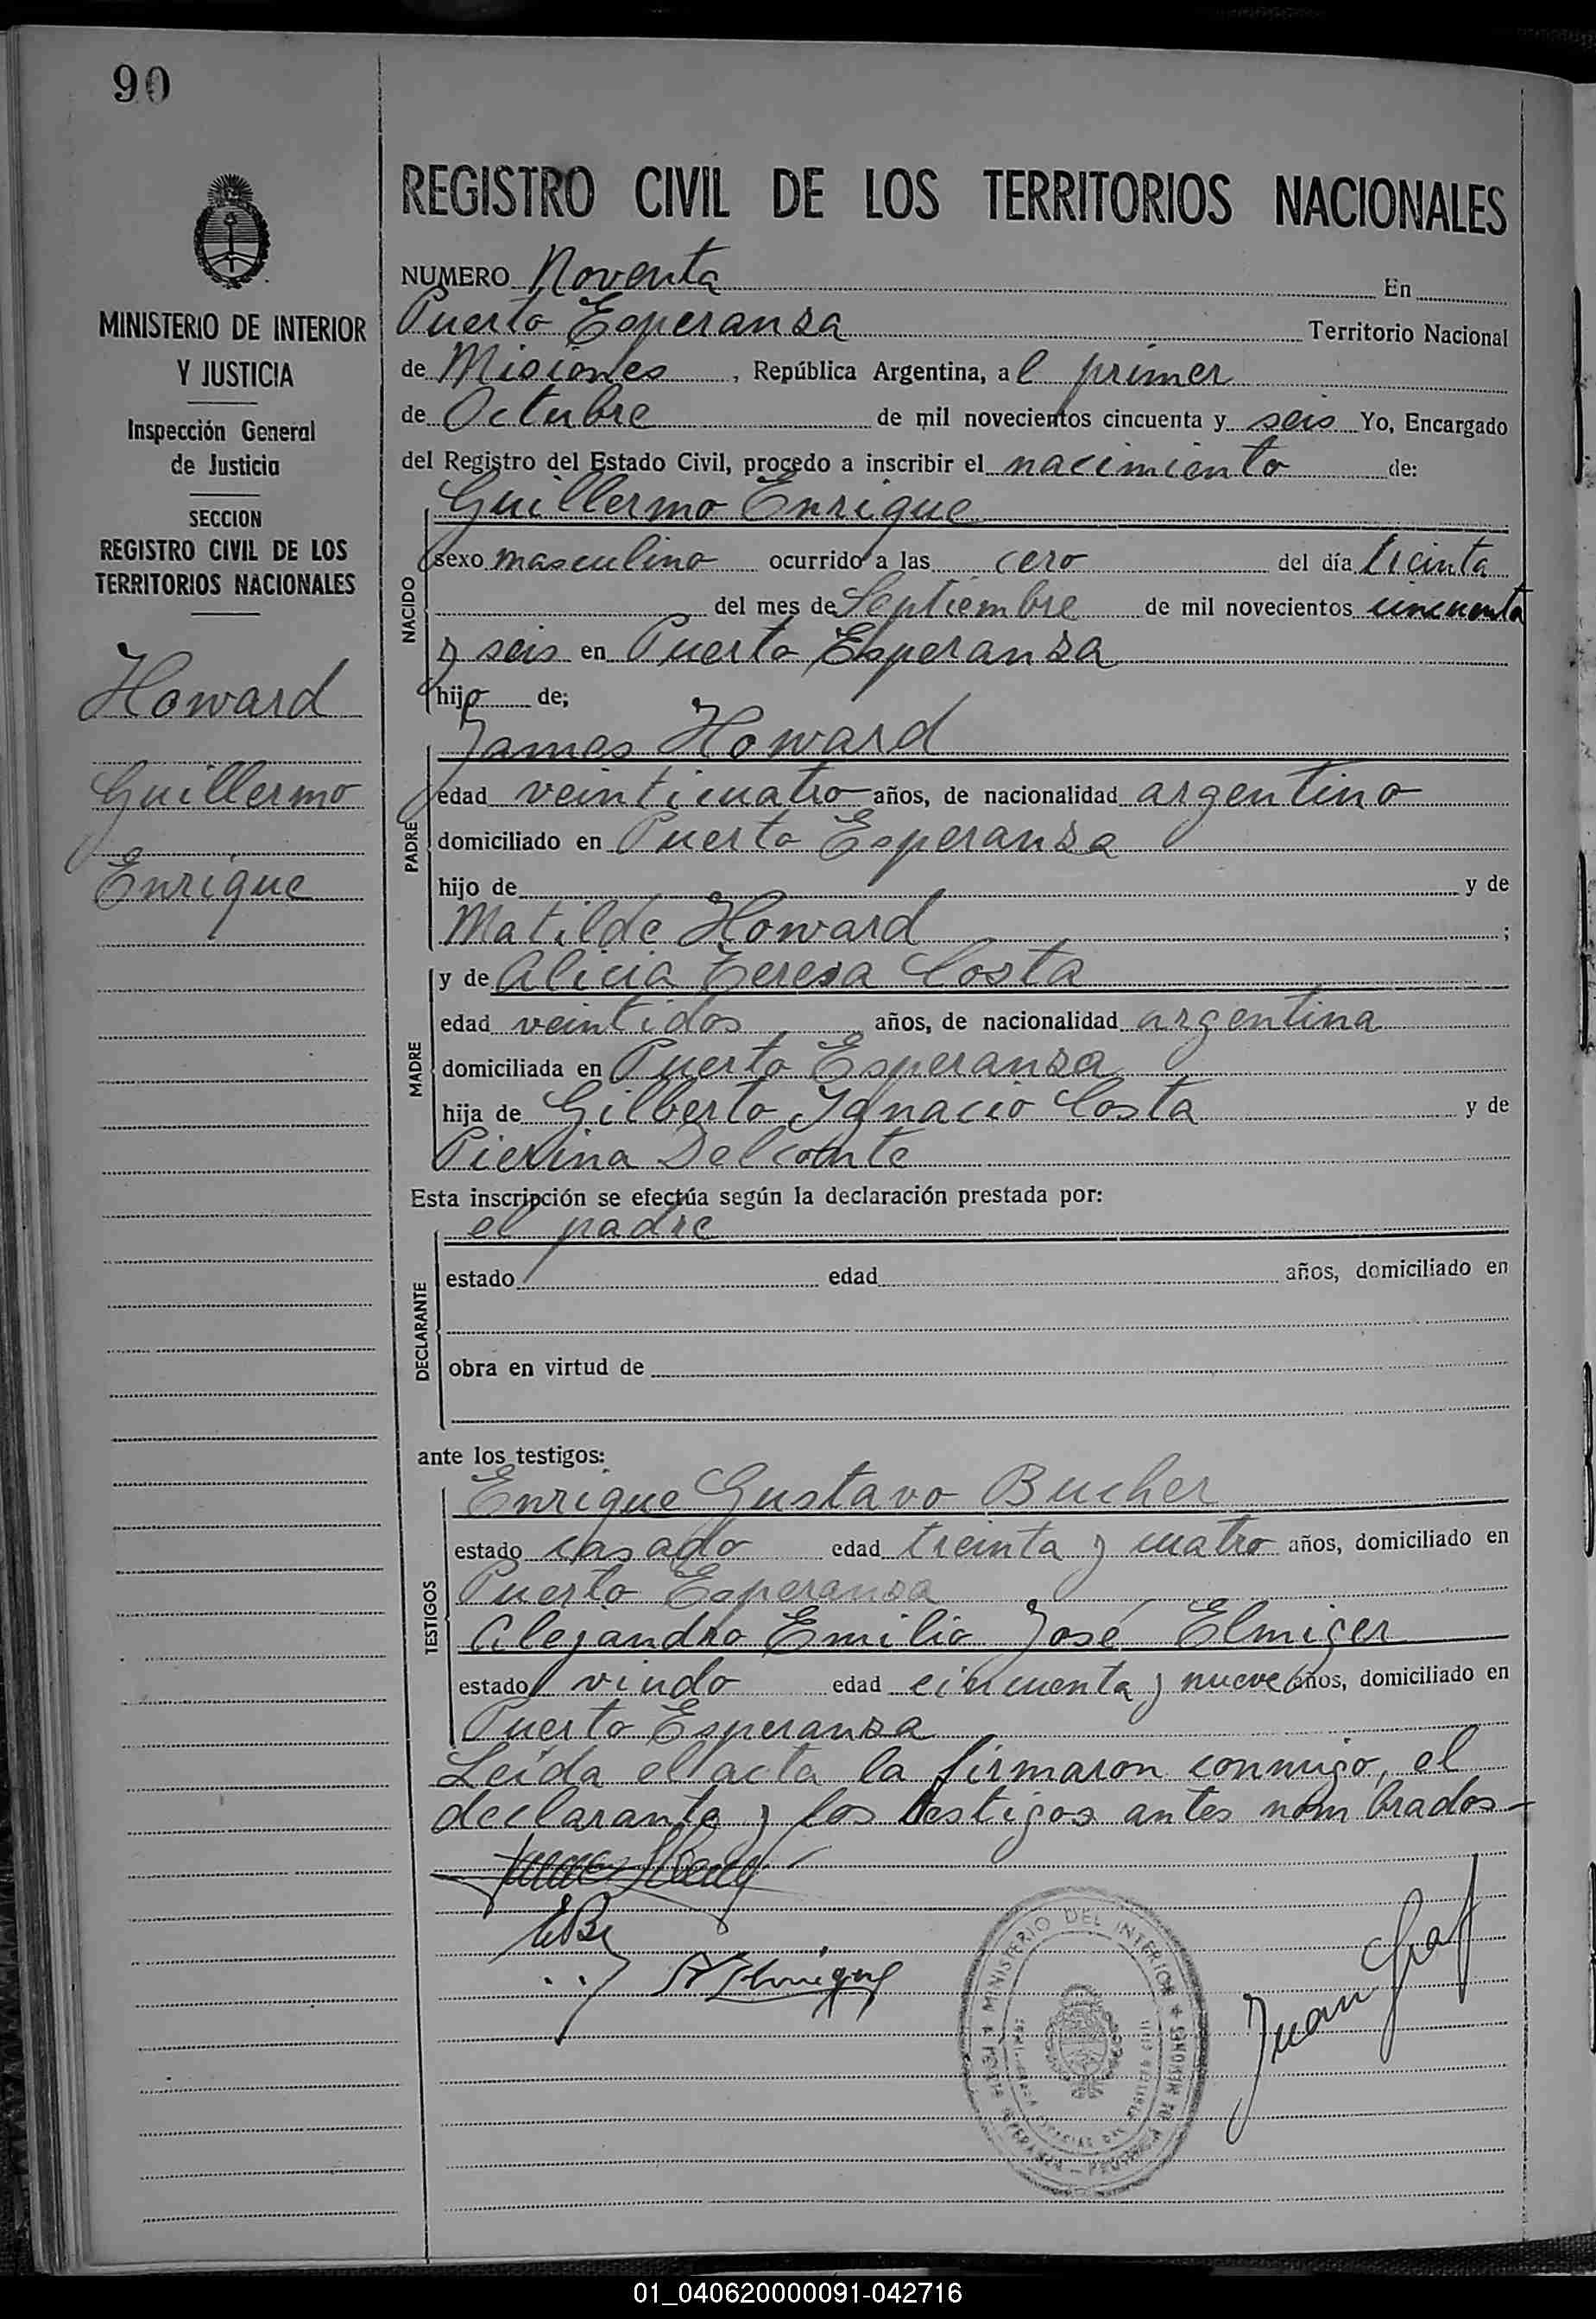 90
REGISTRO CIVIL DE LOS TERRITORIOS NACIONALES
MINISTERIO DE INTERIOR
Y JUSTICIA
Inspección General
de Justicia
SECCION
REGISTRO CIVIL DE LOS
TERRITORIOS NACIONALES
Howard
Guillermo
Enrique
NUMERO Noventa En
Puerto Esperanza Territorio Nacional
de Misiones, República Argentina, al primer
de Octubre de mil novecientos cincuenta y seis Yo, Encargado
del Registro del Estado Civil, procedo a inscribir el nacimiento de:
NACIDO
Guillermo Enrique
sexo masculino ocurrido a las cero del día treinta
del mes de Septiembre de mil novecientos cincuenta
y seis en Puerto Esperanza
hijo de;
PADRE
James Howard
edad veinticuatro años, de nacionalidad argentino
domiciliado en Puerto Esperanza
hijo de y de
Matilde Howard ;
MADRE
y de Alicia Teresa Costa
edad veintidos años, de nacionalidad argentina
domiciliada en Puerto Esperanza
hija de Gilberto Ignacio Costa y de
Pierina Delconte
Esta inscripción se efectúa según la declaración prestada por:
DECLARANTE
el padre
estado edad años, domiciliado en
obra en virtud de
ante los testigos:
TESTIGOS
Enrique Gustavo Bucher
estado casado edad treinta y cuatro años, domiciliado en
Puerto Esperanza
Alejandro Emilio José Elmiger
estado viudo edad cincuenta y nueve años, domiciliado en
Puerto Esperanza
Leída el acta la firmaron conmigo, el
declarante y los testigos antes nombrados-
MINISTERIO DEL INTERIOR
Juan Graf
01_040620000091-042716